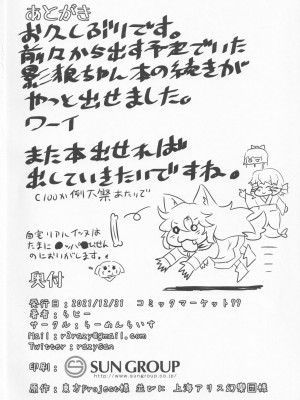 あとがき
お久しぶりです。
前々から出す予定でいた
影狼ちゃん本の続きが
やっと出せました。
ワーイ
また本出せれば
出していきたいですね。
C100か例大祭あたりで
自宅リアルイッヌは
たまに●ッパ●びせん
のにおいがします。
奥付
発行日:2021/12/31 コミックマーケット99
著者:らビー
サークル:らーめんらいす
Mail:r2razy@gmail.com
Twitter:razysan
印刷: SUN GROUP
http://www.sungroup.co.jp/
原作:東方Project様 並びに 上海アリス幻樂団様